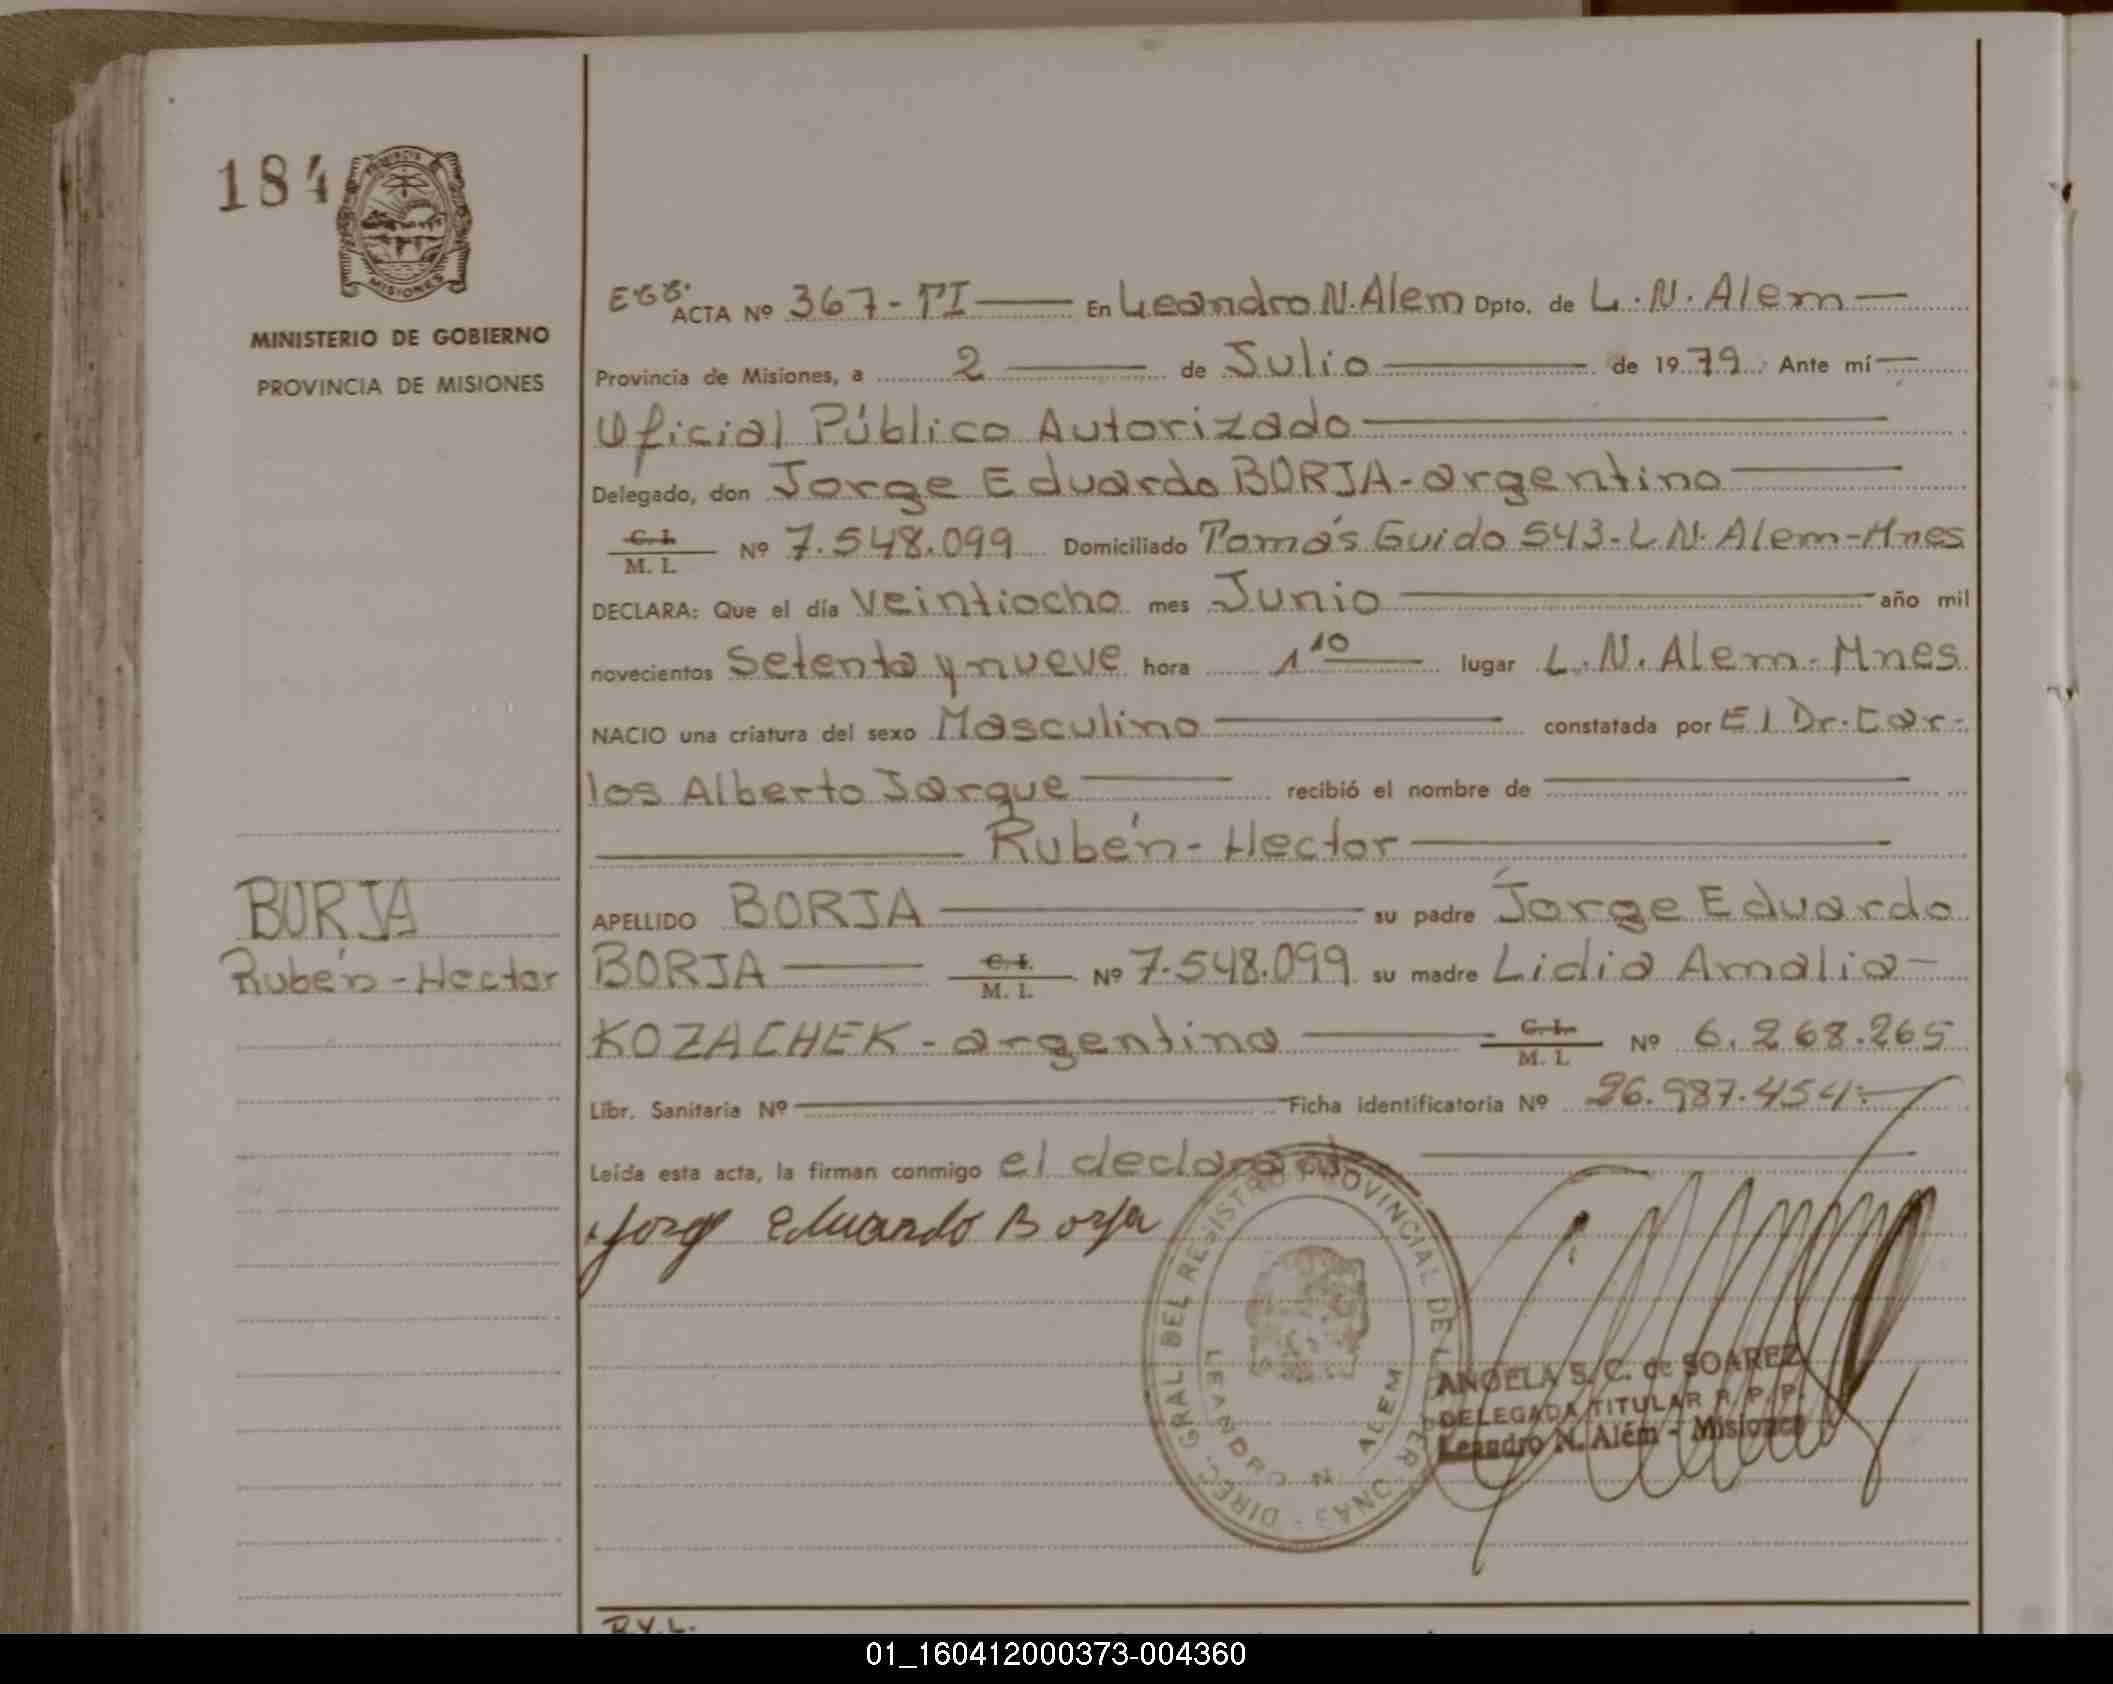 184
PROVINCIA
MISIONES
MINISTERIO DE GOBIERNO
PROVINCIA DE MISIONES
ACTA Nº 367-TI En Leandro N. Alem Dpto. de L. N. Alem
Provincia de Misiones, a 2 de Julio de 1979. Ante mí
Oficial Público Autorizado
Delegado, don Jorge Eduardo BORJA - argentino
C. I. / M. I. Nº 7.548.099 Domiciliado Tomás Guido 543-L.N. Alem-Mnes
DECLARA: Que el día Veintiocho mes Junio año mil
novecientos Setenta y nueve hora 1 10 lugar L. N. Alem-Mnes.
NACIO una criatura del sexo Masculino constatada por El Dr. Car-
los Alberto Jarque recibió el nombre de
Rubén-Hector
APELLIDO BORJA su padre Jorge Eduardo
BORJA C. I. / M. I. Nº 7.548.099 su madre Lidia Amalia
KOZACHEK - argentina C. I. / M. I. Nº 6.268.265
Libr. Sanitaria Nº Ficha identificatoria Nº 26.987.454.
Leída esta acta, la firman conmigo el declarante
Jorge Eduardo Borja
BORJA
Rubén-Hector
DIREC. GRAL. DEL REGISTRO PROVINCIAL DE LAS PERSONAS
LEANDRO N. ALEM
ANGELA S. C. de SOAREZ
DELEGADA TITULAR R. P. P.
Leandro N. Além - Misiones
R.V.L.
01_160412000373-004360